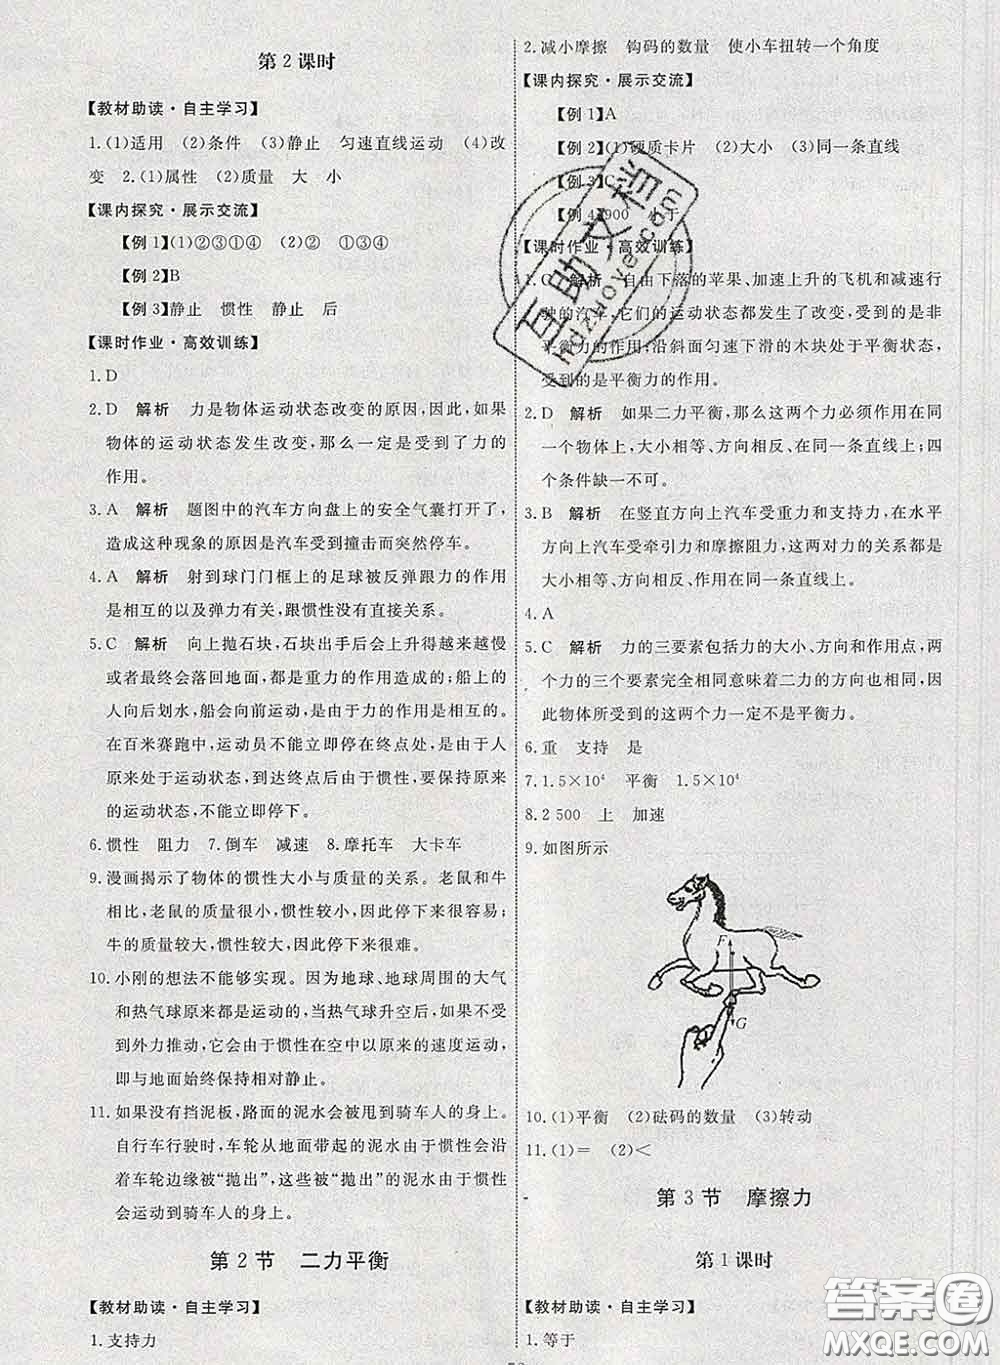 第2课时
【教材助读·自主学习】
1.(1)适用 (2)条件 (3)静止 匀速直线运动 (4)改
变 2.(1)属性 (2)质量 大 小
【课内探究·展示交流】
【例1】(1)②③①④ (2)② ①③④
【例2】B
【例3】静止 惯性 静止 后
【课时作业·高效训练】
1. D
2. D 解析 力是物体运动状态改变的原因,因此,如果
物体的运动状态发生改变,那么一定是受到了力的
作用。
3. A 解析 题图中的汽车方向盘上的安全气囊打开了,
造成这种现象的原因是汽车受到撞击而突然停车。
4. A 解析 射到球门门框上的足球被反弹跟力的作用
是相互的以及弹力有关,跟惯性没有直接关系。
5. C 解析 向上抛石块,石块出手后会上升得越来越慢
或者最终会落回地面,都是重力的作用造成的;船上的
人向后划水,船会向前运动,是由于力的作用是相互的。
在百米赛跑中,运动员不能立即停在终点处,是由于人
原来处于运动状态,到达终点后由于惯性,要保持原来
的运动状态,不能立即停下。
6. 惯性 阻力 7. 倒车 减速 8. 摩托车 大卡车
9. 漫画揭示了物体的惯性大小与质量的关系。老鼠和牛
相比,老鼠的质量很小,惯性较小,因此停下来很容易;
牛的质量较大,惯性较大,因此停下来很难。
10. 小刚的想法不能够实现。因为地球、地球周围的大气
和热气球原来都是运动的,当热气球升空后,如果不受
到外力推动,它会由于惯性在空中以原来的速度运动,
即与地面始终保持相对静止。
11. 如果没有挡泥板,路面的泥水会被甩到骑车人的身上。
自行车行驶时,车轮从地面带起的泥水由于惯性会沿
车轮边缘被“抛出”,这些被“抛出”的泥水由于惯性
会运动到骑车人的身上。
第2节 二力平衡
【教材助读·自主学习】
1. 支持力
2. 减小摩擦 钩码的数量 使小车扭转一个角度
【课内探究·展示交流】
【例1】A
【例2】(1)硬质卡片 (2)大小 (3)同一条直线
【例3】C
【例4】900 于
【课时作业·高效训练】
1. C 解析 自由下落的苹果,加速上升的飞机和减速行
驶的汽车,它们的运动状态都发生了改变,受到的是非
平衡力的作用;沿斜面匀速下滑的木块处于平衡状态,
受到的是平衡力的作用。
2. D 解析 如果二力平衡,那么这两个力必须作用在同
一个物体上,大小相等、方向相反、在同一条直线上;四
个条件缺一不可。
3. B 解析 在竖直方向上汽车受重力和支持力,在水平
方向上汽车受牵引力和摩擦阻力,这两对力的关系都是
大小相等、方向相反、在同一条直线上。
4. A
5. C 解析 力的三要素包括力的大小、方向和作用点,两个
力的三个要素完全相同意味着二力的方向也相同,因
此物体所受到的这两个力一定不是平衡力。
6. 重 支持 是
7. 1.5×10⁴ 平衡 1.5×10⁴
8. 2 500 上 加速
9. 如图所示
F
G
10. (1)平衡 (2)砝码的数量 (3)转动
11. (1)= (2)<
第3节 摩擦力
第1课时
【教材助读·自主学习】
1. 等于
互助文档
hdzuoye.com
答案圈
MXQE.COM